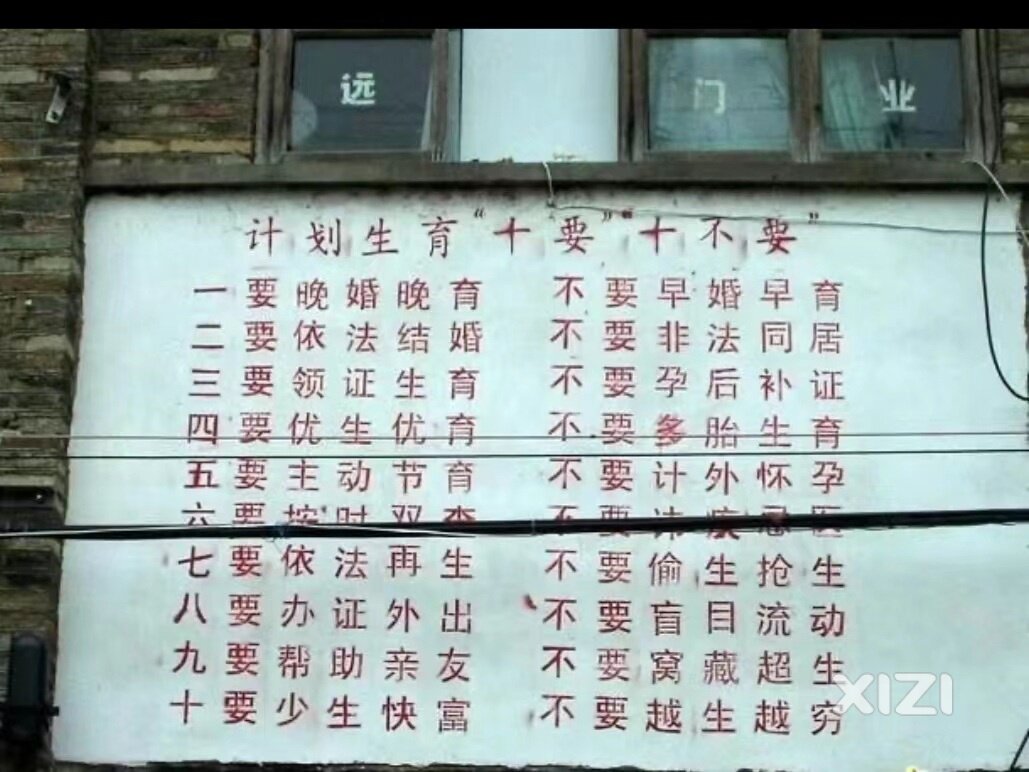 远 门 业
计划生育“十要”“十不要”
一要晚婚晚育 不要早婚早育
二要依法结婚 不要非法同居
三要领证生育 不要孕后补证
四要优生优育 不要多胎生育
五要主动节育 不要计外怀孕
六要按时双查 不要讳疾忌医
七要依法再生 不要偷生抢生
八要办证外出 不要盲目流动
九要帮助亲友 不要窝藏超生
十要少生快富 不要越生越穷
XIZI